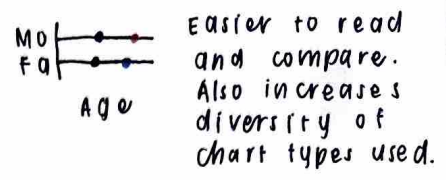 Mo
Fa
Age
Easier to read
and compare.
Also increases
diversity of
chart types used.